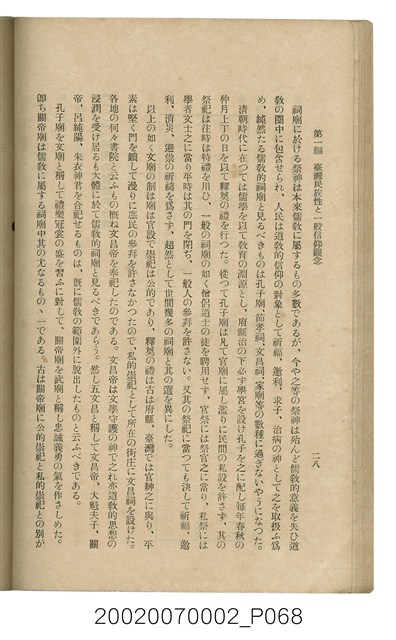 第一編　臺灣民族性と一般信仰觀念
二八
祠廟に於ける祭神は本來儒敎に屬するもの多數であるが、今や之等の祭神は殆んど儒敎的意義を失ひ道
敎の圈中に包含せられ、人民は道敎的信仰の對象として祈福、邀利、求子、治病の神として之を取扱ふ爲
め、純然たる儒敎的祠廟と見るべきものは孔子廟、節孝祠、文昌祠、家廟等の數種に過ぎないやうになつた。
清朝時代に在つては儒學を以て敎育の淵源とし、府縣治の下必ず學宮を設け孔子を之に配し每年春秋の
仲月上丁の日を以て釋奠の禮を行つた。從つて孔子廟は凡て官廟に屬し濫りに民間の私設を許さず、其の
祭祀は往時は特禮を用ひ、一般の祠廟の如く僧侶道士の徒を聘用せず、官祭には祭官之に當り、私祭には
學者文士之に當り平時は其の門を閉ぢ、一般人の參拜を許さない。又其の祭祀に當つても決して祈福、邀
利、消災、避祟の祈禱を爲さず、超然として世間幾多の祠廟と其の選を異にした。
以上の如く文廟の制は廟は官設で崇祀は公的であり、釋奠の禮は古は府縣、臺灣では官紳之に與り、平
素は堅く門を鎖して漫りに庶民の參拜を許さなかつたので、私的崇祀として所在の街庄に文昌祠を設けた。
各地の何々書院と云ふもの槪ね文昌帝を奉祀したのである。文昌帝は文學守護の神で之れ亦道敎的思想の
浸潤を受け居るも大體に於て儒敎的祠廟と見るべきであらう。然し五文昌と稱して文昌帝、大魁夫子、關
帝、呂純陽、朱衣神君を合祀せるものは、旣に儒敎の範圍外に脫出したものと云ふべきである。
孔子廟を文廟と稱して禮樂冠裳の盛を習ふに對して、關帝廟を武廟と稱し忠誠義勇の氣を作さしめた。
卽ち關帝廟は儒敎に屬する祠廟中其の尤なるものゝ一である。古は關帝廟に公的崇祀と私的崇祀との別が
20020070002_P068